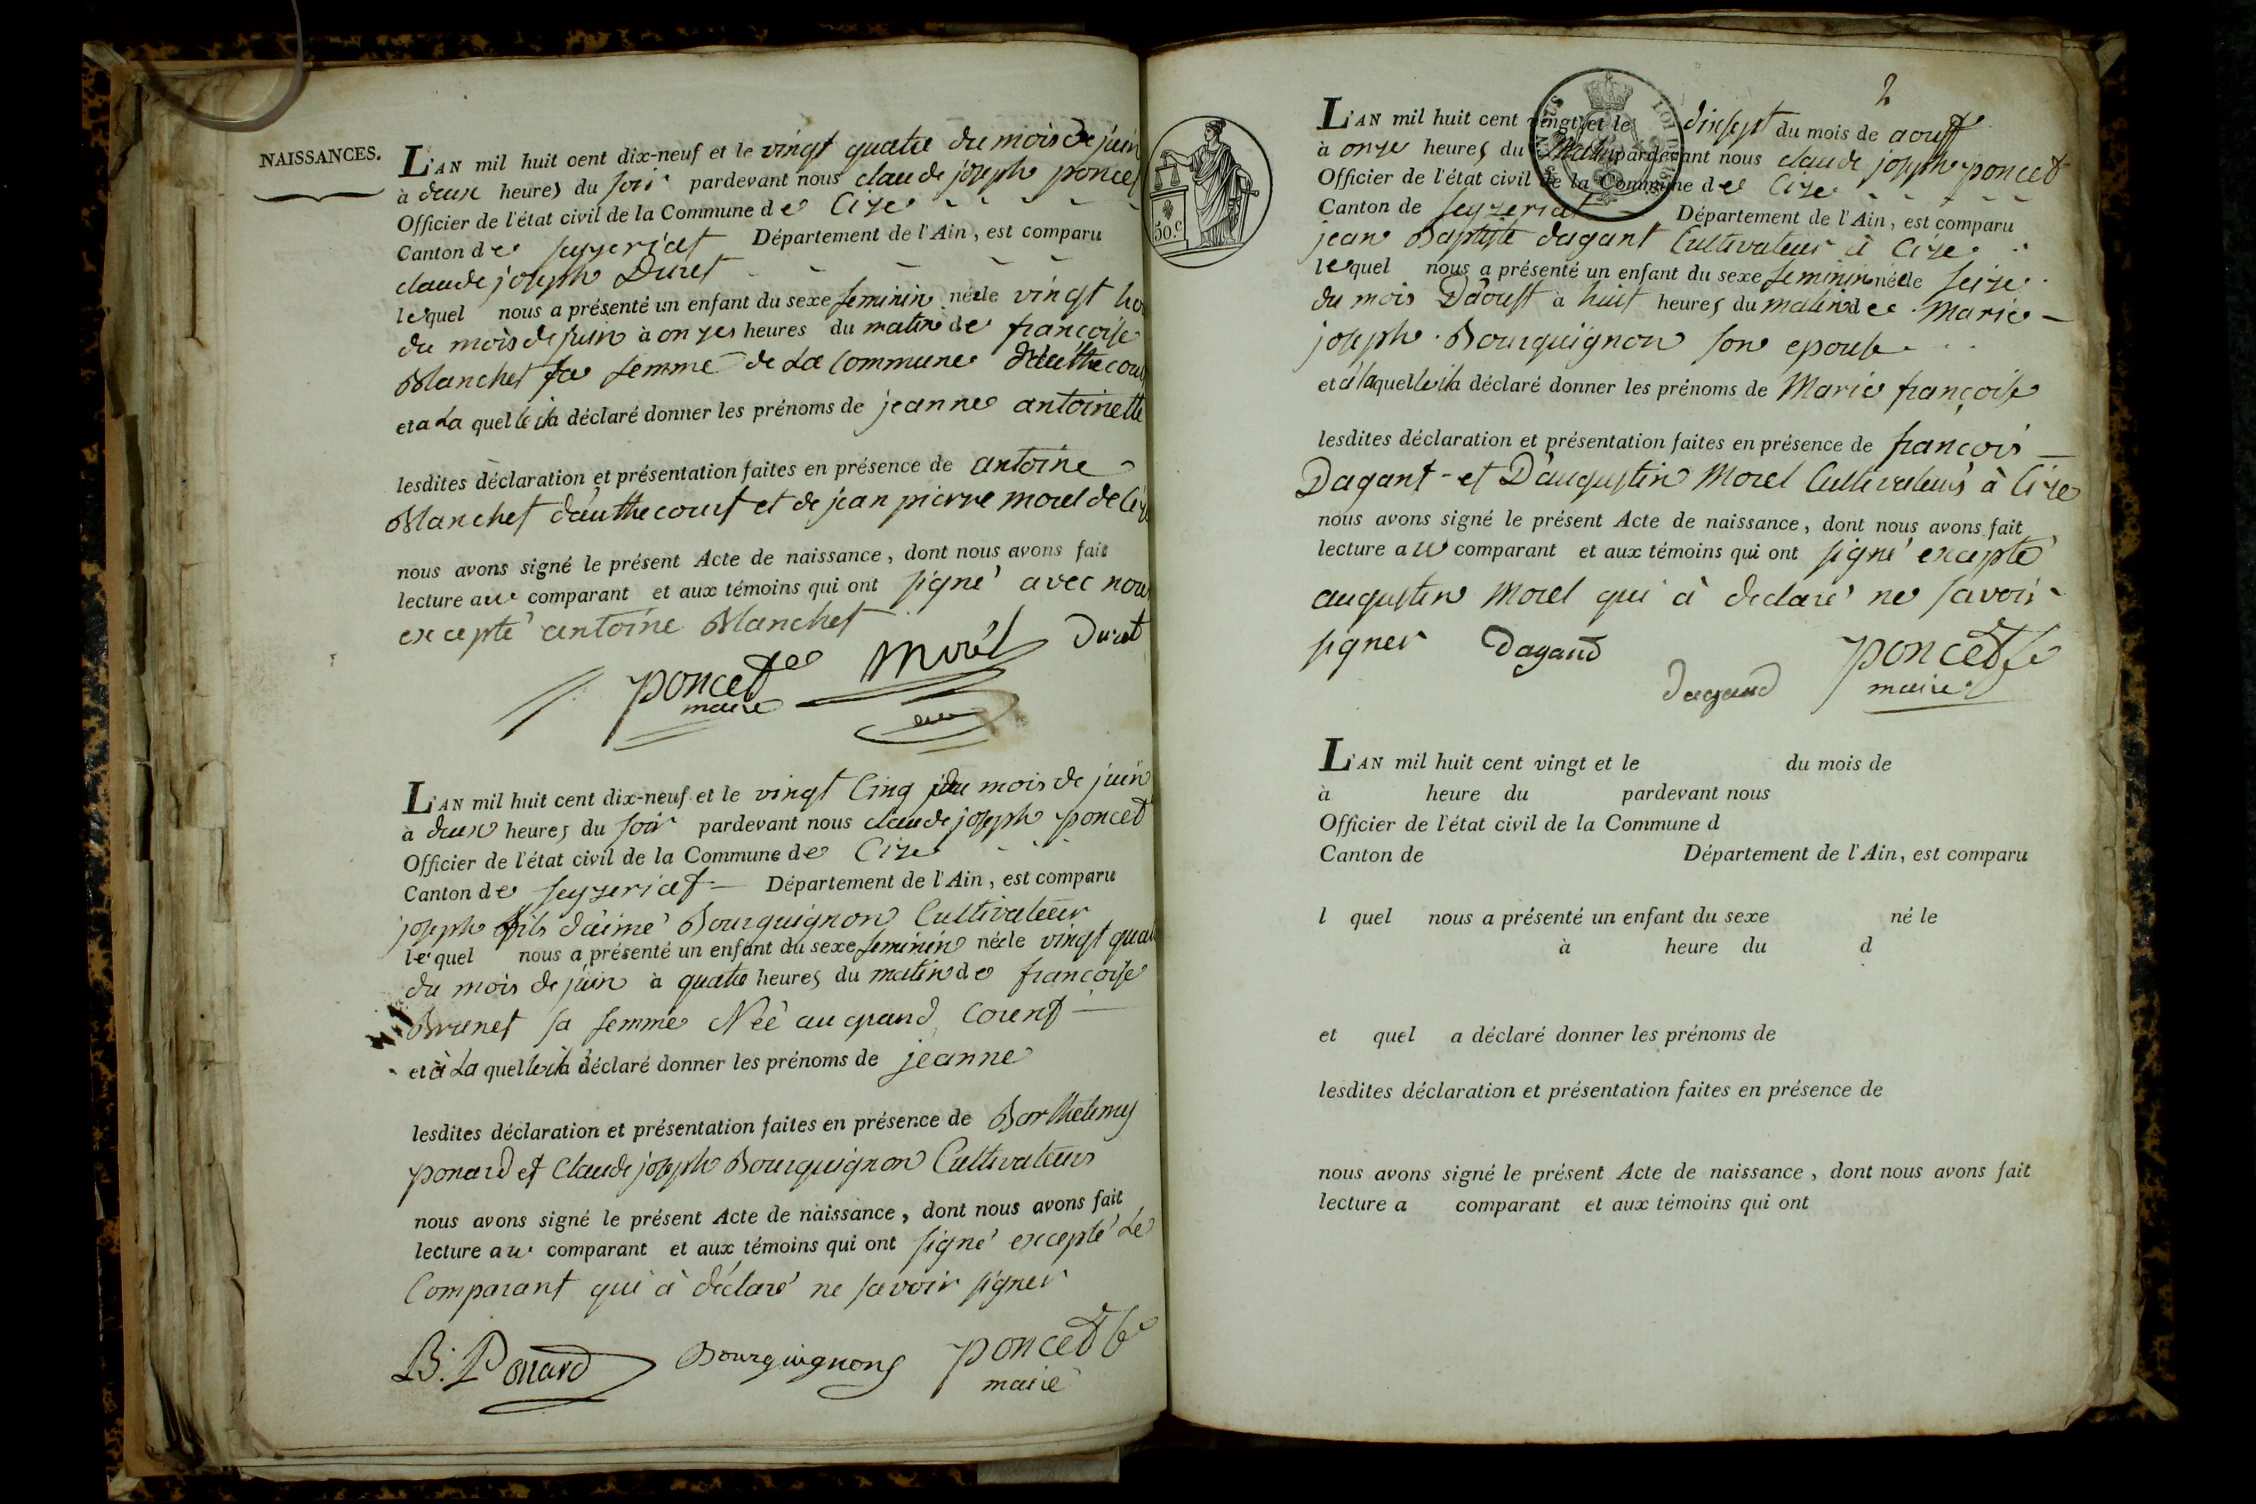 NAISSANCES.
L'AN mil huit cent dix-neuf et le vingt quatre du mois de juin
à deux heures du soir pardevant nous claude joseph poncet
Officier de l'état civil de la Commune de Cize
Canton de seyzeriat Département de l'Ain, est comparu
claude joseph Duret
lequel nous a présenté un enfant du sexe feminin née le vingt
du mois de juin à onzes heures du matin de françoise
Blanchet sa femme de La Commune
et a La quelle il a déclaré donner les prénoms de jeanne antoinette
lesdites déclaration et présentation faites en présence de antoine
Blanchet d'authecourt et de jean pierre morel de Cize
nous avons signé le présent Acte de naissance, dont nous avons fait
lecture au comparant et aux témoins qui ont signé avec nous
excepté antoine Blanchet
poncet morel Duret
maire
L'AN mil huit cent dix-neuf et le vingt Cinq du mois de juin
à deux heures du soir pardevant nous claude joseph poncet
Officier de l'état civil de la Commune de Cize
Canton de seyzeriat Département de l'Ain, est comparu
joseph fils d'aimé Bourguignon Cultivateur
lequel nous a présenté un enfant du sexe feminin née le vingt quatre
du mois de juin à quatre heures du matin de françoise
Brunet sa femme Née au grand Corent
et à La quelle il a déclaré donner les prénoms de jeanne
lesdites déclaration et présentation faites en présence de Barthelemy
ponard et Claude joseph Bourguignon Cultivateurs
nous avons signé le présent Acte de naissance, dont nous avons fait
lecture au comparant et aux témoins qui ont signé excepté Le
Comparant qui à déclaré ne savoir signer
B. Ponard Bourguignon poncet
maire
50.c
2
L'AN mil huit cent vingt et le dixsept du mois de aoust
à onze heures du Matin pardevant nous claude joseph poncet
Officier de l'état civil de la Commune de Cize
Canton de seyzeriat Département de l'Ain, est comparu
jean Baptiste dagant Cultivateur à Cize
lequel nous a présenté un enfant du sexe feminin née le seize
du mois D'aoust à huit heures du matin de Marie
joseph Bourguignon son epouse
et à laquelle il a déclaré donner les prénoms de Marie françoise
lesdites déclaration et présentation faites en présence de françois
Dagant et D'augustin Morel Cultivateurs à Cize
nous avons signé le présent Acte de naissance, dont nous avons fait
lecture au comparant et aux témoins qui ont signé excepté
augustin Morel qui à declaré ne savoir
signer Dagand poncet
dagand maire
L'AN mil huit cent vingt et le du mois de
à heure du pardevant nous
Officier de l'état civil de la Commune d
Canton de Département de l'Ain, est comparu
l quel nous a présenté un enfant du sexe né le
à heure du d
et quel a déclaré donner les prénoms de
lesdites déclaration et présentation faites en présence de
nous avons signé le présent Acte de naissance, dont nous avons fait
lecture a comparant et aux témoins qui ont